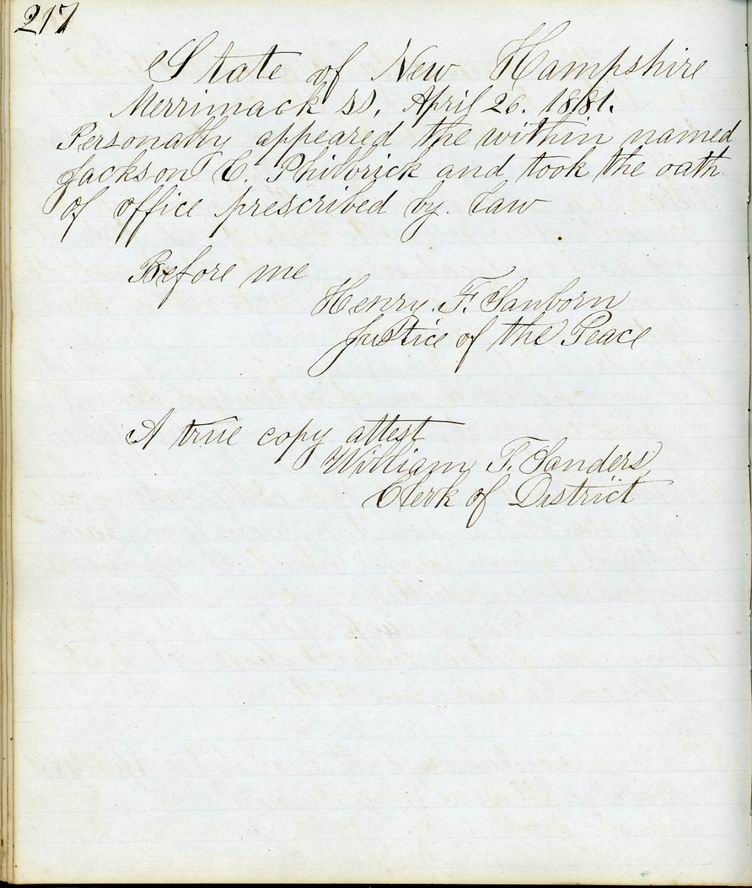 217
State of New Hampshire
Merrimack SS. April 26. 1881.
Personally appeared the within named
Jackson C. Philbrick and took the oath
of office prescribed by law
Before me
Henry. F. Sanborn
Justice of the Peace
A true copy attest
William T. Sanders
Clerk of District